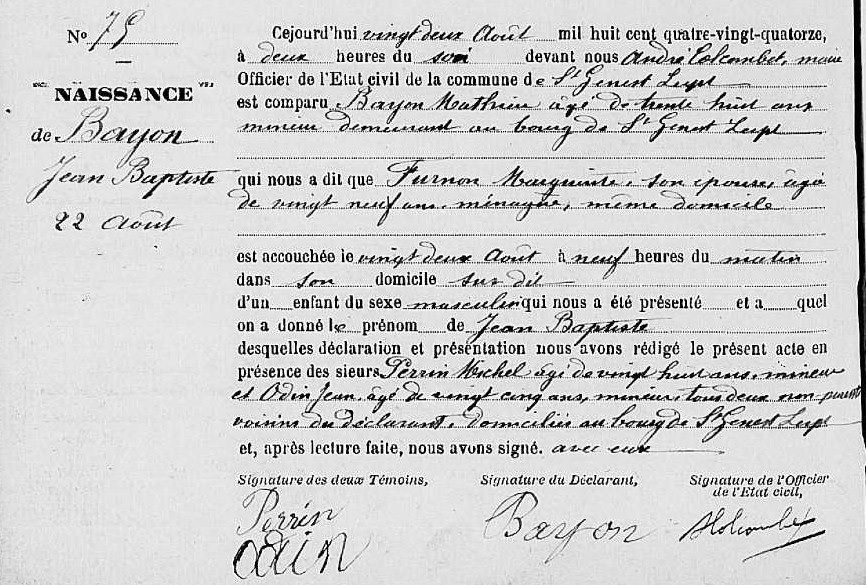 No 75
NAISSANCE
de Bayon
Jean Baptiste
22 Août
Cejourd'hui vingt deux Août mil huit cent quatre-vingt-quatorze,
à deux heures du soir devant nous André Colcombet, maire
Officier de l'Etat civil de la commune de St Genest Lerpt
est comparu Bayon Mathieu âgé de trente huit ans
mineur demeurant au bourg de St Genest Lerpt
qui nous a dit que Furnon Marguerite, son épouse, âgée
de vingt neuf ans, ménagère, même domicile
est accouchée le vingt deux Août à neuf heures du matin
dans son domicile sus dit
d'un enfant du sexe masculin qui nous a été présenté et a quel
on a donné le prénom de Jean Baptiste
desquelles déclaration et présentation nous avons rédigé le présent acte en
présence des sieurs Perrin Michel âgé de vingt huit ans, mineur
et Odin Jean, âgé de vingt cinq ans, mineur, tous deux non parents
voisins du déclarant, domiciliés au bourg de St Genest Lerpt
et, après lecture faite, nous avons signé. avec eux
Signature des deux Témoins,
Perrin
Odin
Signature du Déclarant,
Bayon
Signature de l'Officier
de l'Etat civil,
A Colcombet